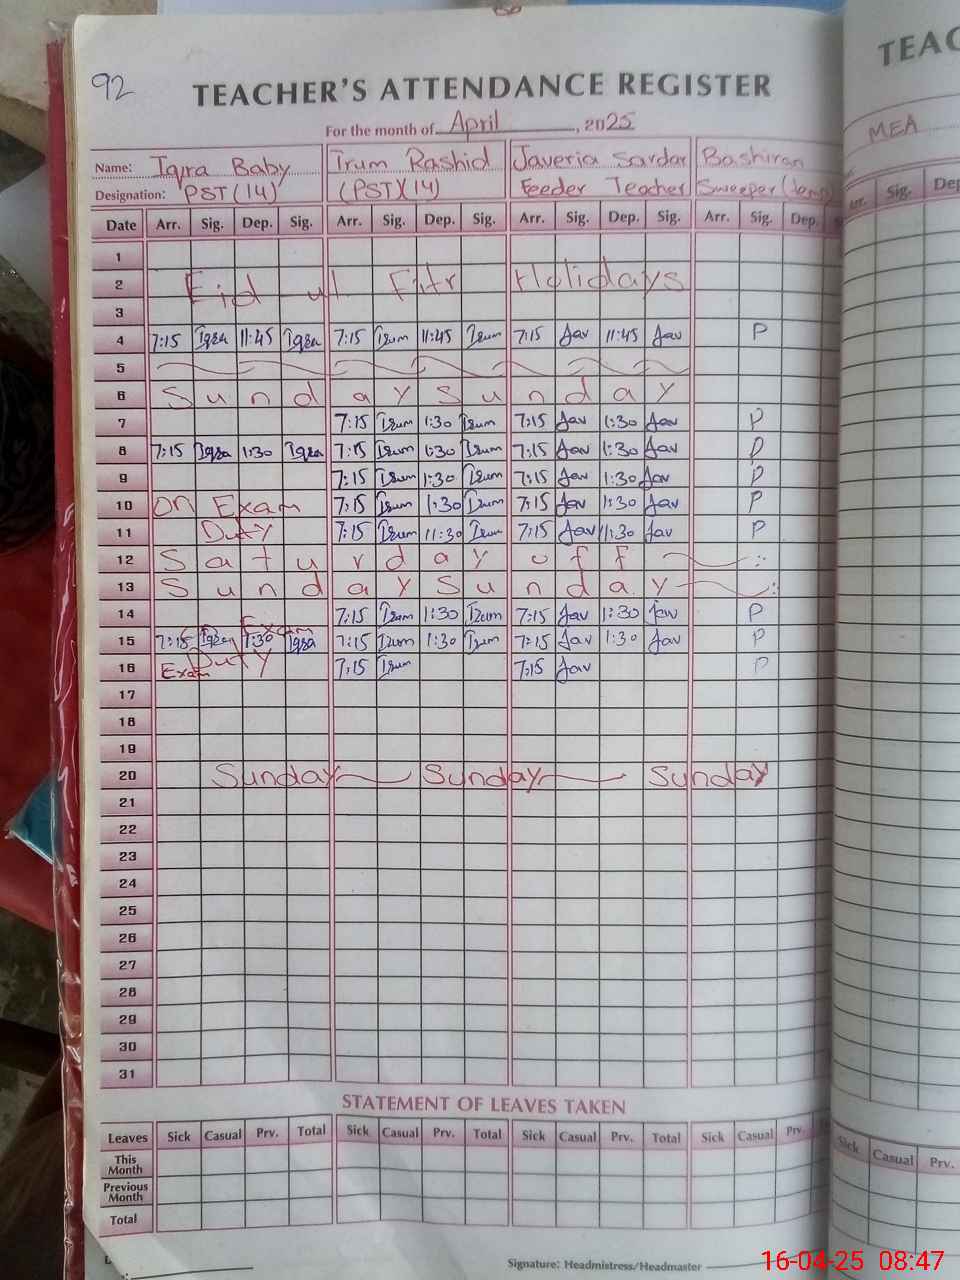 92
TEACHER'S ATTENDANCE REGISTER
For the month of April, 2025
Name: Iqra Baby Irum Rashid Javeria Sardar Bashiran
Designation: PST (14) (PST)(14) Feeder Teacher Sweeper (temp)
Date Arr. Sig. Dep. Sig. Arr. Sig. Dep. Sig. Arr. Sig. Dep. Sig. Arr. Sig. Dep.
1
2 Eid ul Fitr Holidays
3
4 7:15 Iqra 11:45 Iqra 7:15 Irum 11:45 Irum 7:15 Jav 11:45 Jav P
5
6 Sunday Sunday
7 7:15 Irum 1:30 Irum 7:15 Jav 1:30 Jav P
8 7:15 Iqra 1:30 Iqra 7:15 Irum 1:30 Irum 7:15 Jav 1:30 Jav P
9 7:15 Irum 1:30 Irum 7:15 Jav 1:30 Jav P
10 On Exam 7:15 Irum 1:30 Irum 7:15 Jav 1:30 Jav P
11 Duty 7:15 Irum 11:30 Irum 7:15 Jav 11:30 Jav P
12 Saturday off
13 Sunday Sunday
14 7:15 Irum 1:30 Irum 7:15 Jav 1:30 Jav P
15 7:15 Iqra 1:30 Iqra Exam 7:15 Irum 1:30 Irum 7:15 Jav 1:30 Jav P
16 Exam Duty 7:15 Irum 7:15 Jav P
17
18
19
20 Sunday Sunday Sunday
21
22
23
24
25
26
27
28
29
30
31
STATEMENT OF LEAVES TAKEN
Leaves Sick Casual Prv. Total Sick Casual Prv. Total Sick Casual Prv. Total Sick Casual Prv.
This Month
Previous Month
Total
Signature: Headmistress/Headmaster
TEAC
MEA
Arr. Sig. Dep
Sick Casual Prv.
16-04-25 08:47